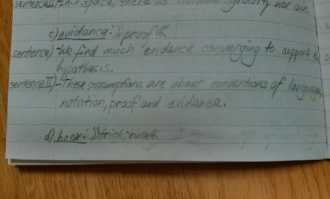 sentence I) In space, there is neither gravity nor air.
c) evidence: i) proof
sentence) We find much evidence converging to support a
hypothesis.
sentence II) These assumptions are about conventions of language,
notation, proof and evidence.
d) i) trick